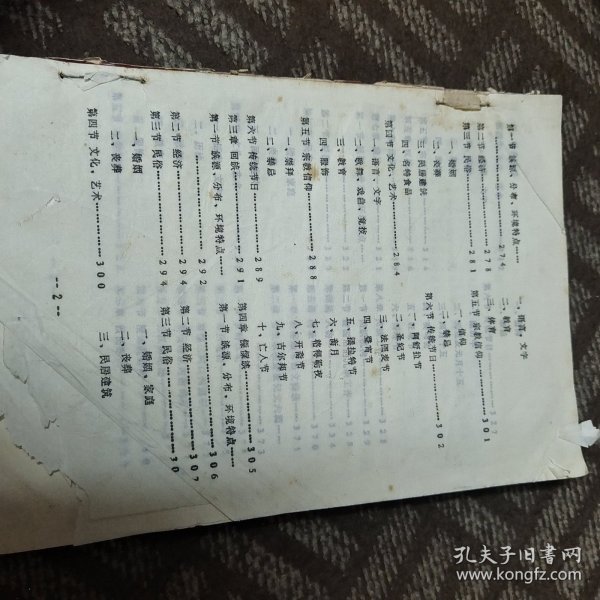 第一节 族源、分布、环境特点……
………………274
第二节 经济…………278
第三节 民俗…………281
一、婚姻
二、丧葬
三、民居建筑
四、名特食品
第四节 文化、艺术…………284
一、语言、文字
二、歌舞、戏曲、竞技
三、教育
四、服饰
第五节 宗教信仰…………288
一、崇拜
二、禁忌
第六节 传统节日…………289
第三章 回族…………291
第一节 族源、分布、环境特点……
………………292
第二节 经济…………294
第三节 民俗…………294
一、婚姻
二、丧葬
第四节 文化、艺术…………300
一、语言、文字
二、教育
三、体育
第五节 宗教信仰…………301
一、信仰
二、禁忌
第六节 传统节日…………302
一、阿舒拉节
二、圣纪节
三、法图麦节
四、登霄节
五、拜拉特节
六、斋月
七、格得勒夜
八、开斋节
九、古尔邦节
十、亡人节
第四章 傣族…………305
第一节 族源、分布、环境特点……
………………306
第二节 经济…………307
第三节 民俗…………307
一、婚姻、家庭
二、丧葬
三、民居建筑
--2--
孔夫子旧书网
www.kongfz.com